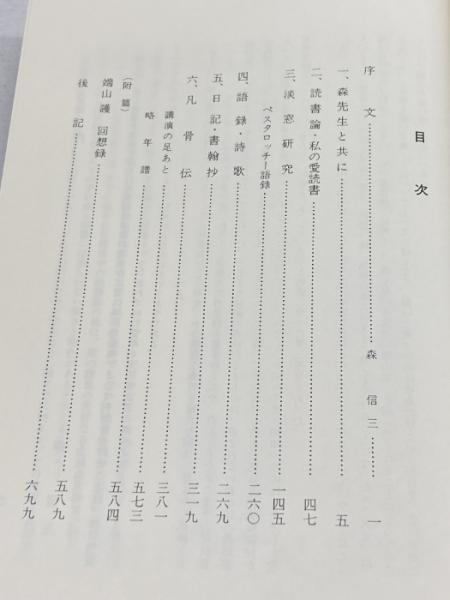 目次
序文……………………森信三……一
一、森先生と共に……………………五
二、読書論・私の愛読書……………………四七
三、淡窓研究……………………一四五
ペスタロッチー語録……………………二六〇
四、語録・詩歌……………………二六九
五、日記・書翰抄……………………三一九
六、凡骨伝……………………三八一
講演の足あと……………………五七三
略年譜……………………五八四
（附篇）
端山護 回想録……………………五八九
後記……………………六九九